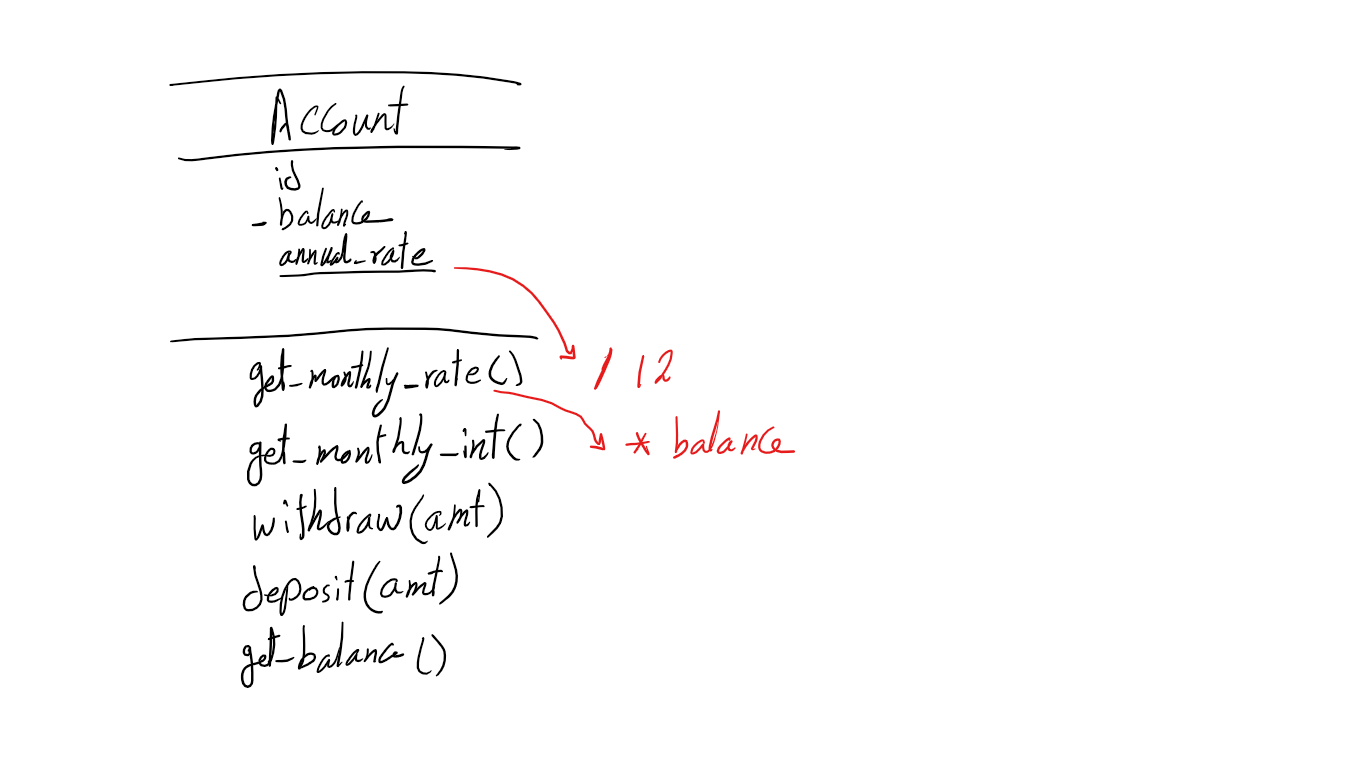 Account
id
- balance
annual_rate
get_monthly_rate() / 12
get_monthly_int() * balance
withdraw(amt)
deposit(amt)
get_balance()